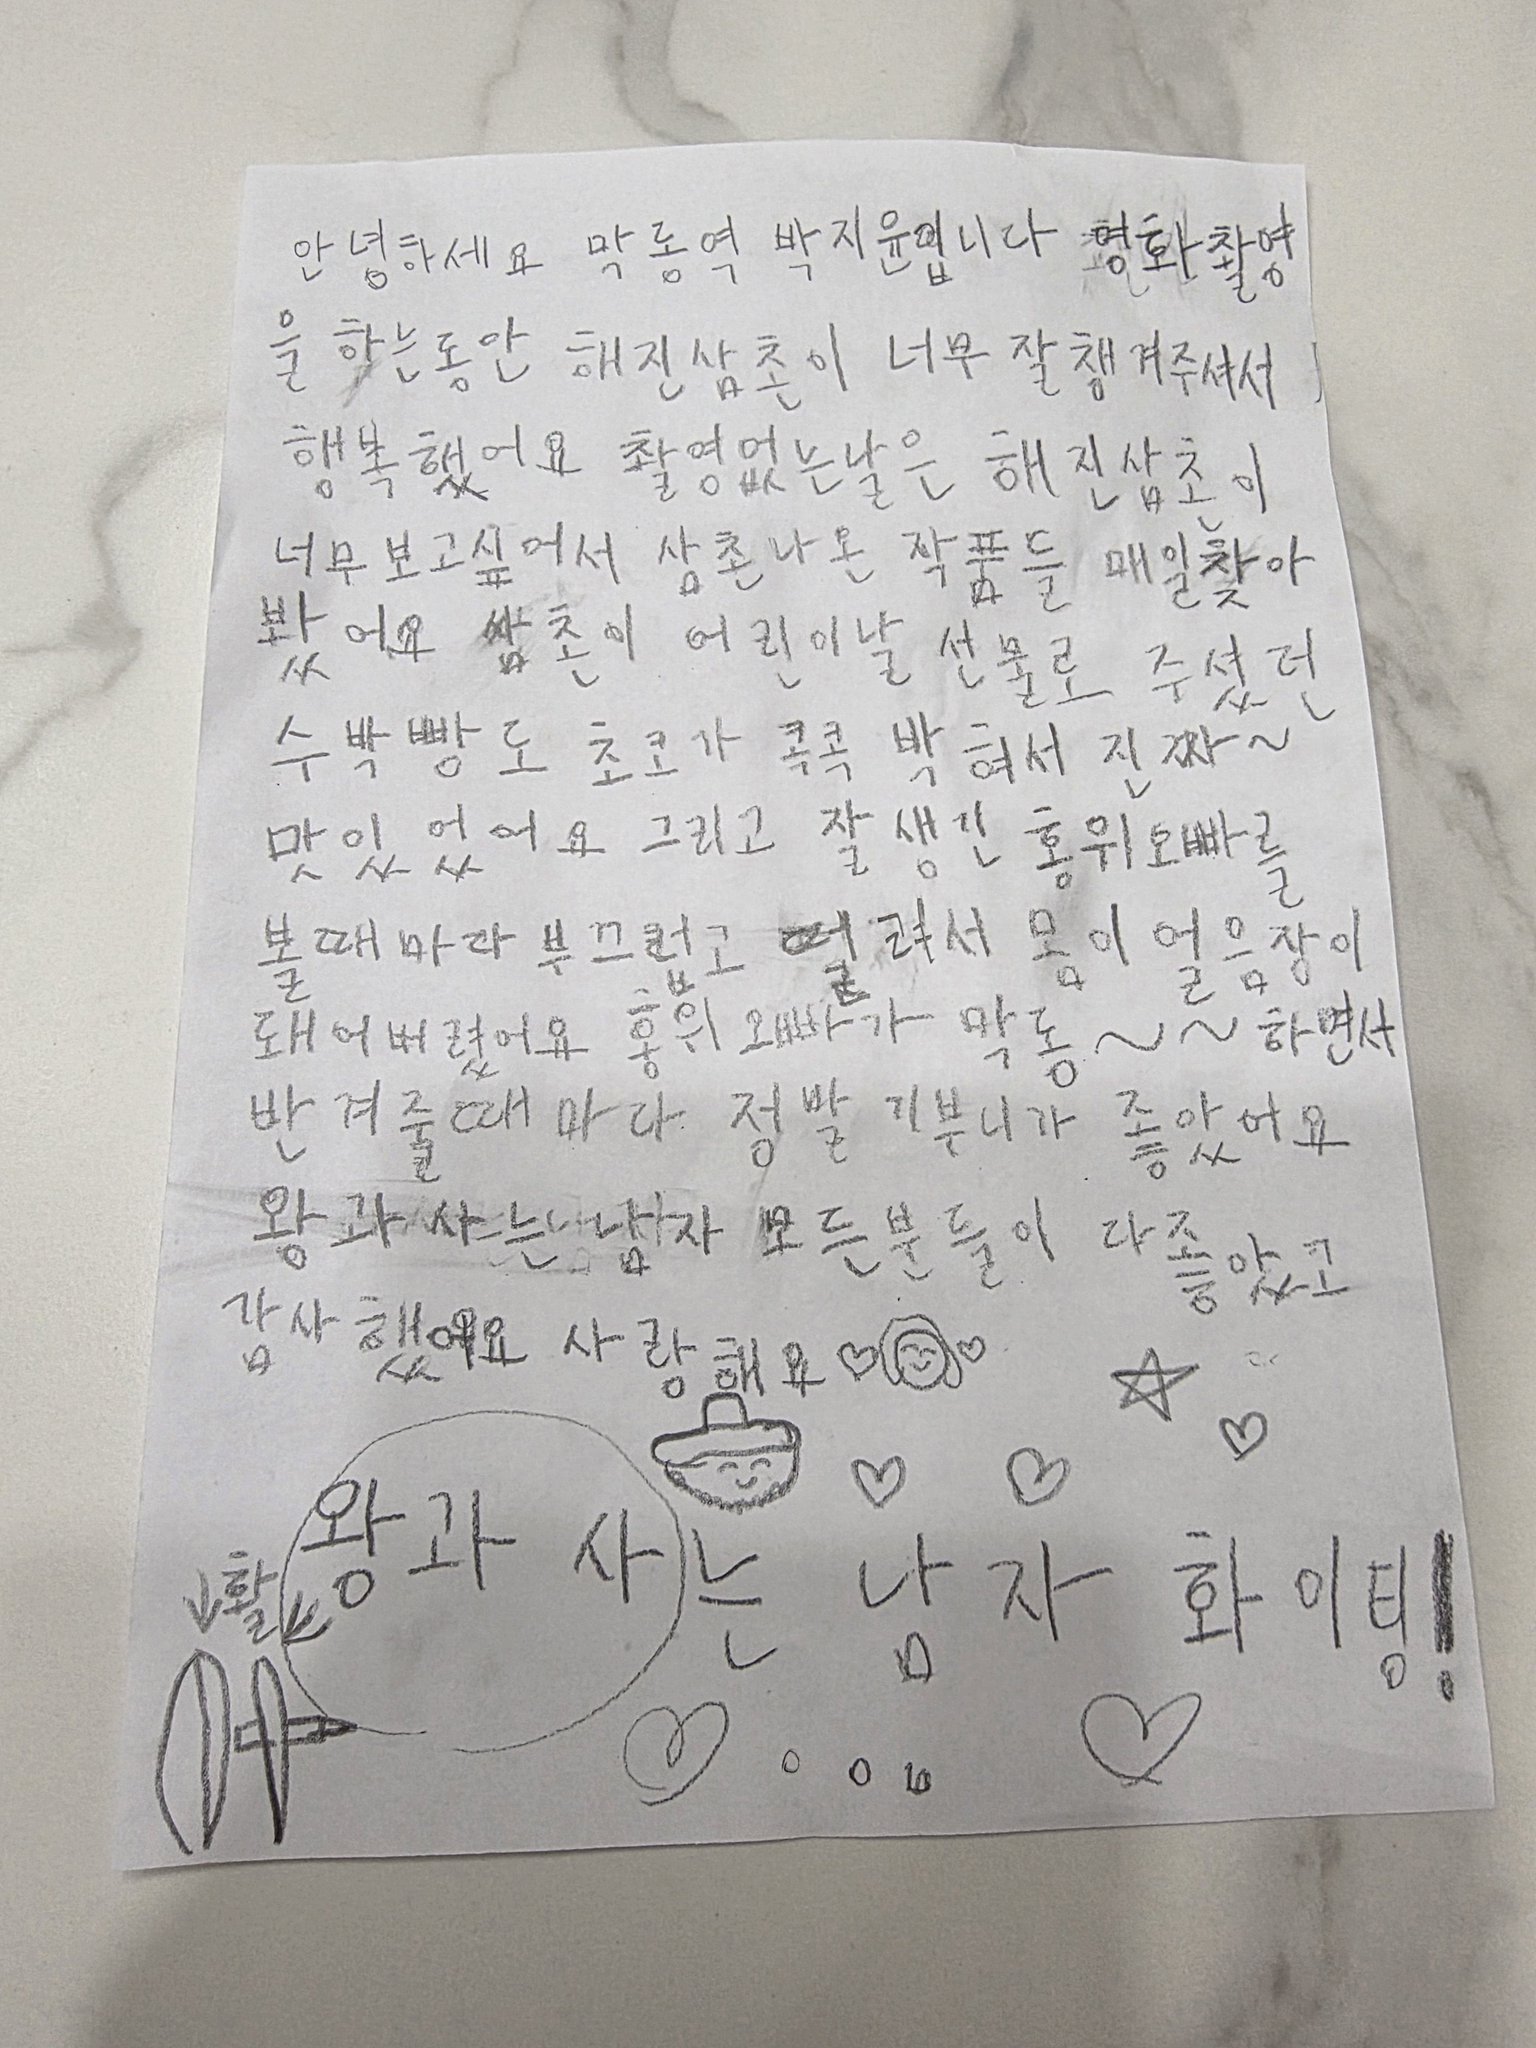 안녕하세요 막동역 박지윤입니다 영화촬영
을 하는동안 해진삼촌이 너무 잘챙겨주셔서
행복했어요 촬영없는날은 해진삼촌이
너무보고싶어서 삼촌나온 작품들 매일찾아
봤어요 삼촌이 어린이날 선물로 주셨던
수박빵도 초코가 콕콕 박혀서 진짜~
맛있었어요 그리고 잘생긴 홍위오빠를
볼때마다 부끄럽고 떨려서 몸이 얼음장이
돼어버렸어요 홍위오빠가 막동~~하면서
반겨줄때마다 정말 기부니가 좋았어요
왕과 사는남자 모든분들이 다좋았고
감사했어요 사랑해요
왕과 사는 남자 화이팅!
활